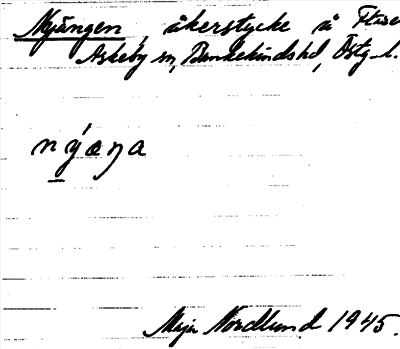 Nyängen, åkerstycke å
Askeby sn, Bankekinds hd, Östg. l.
nýæŋa
Maja Nordlund 1945.